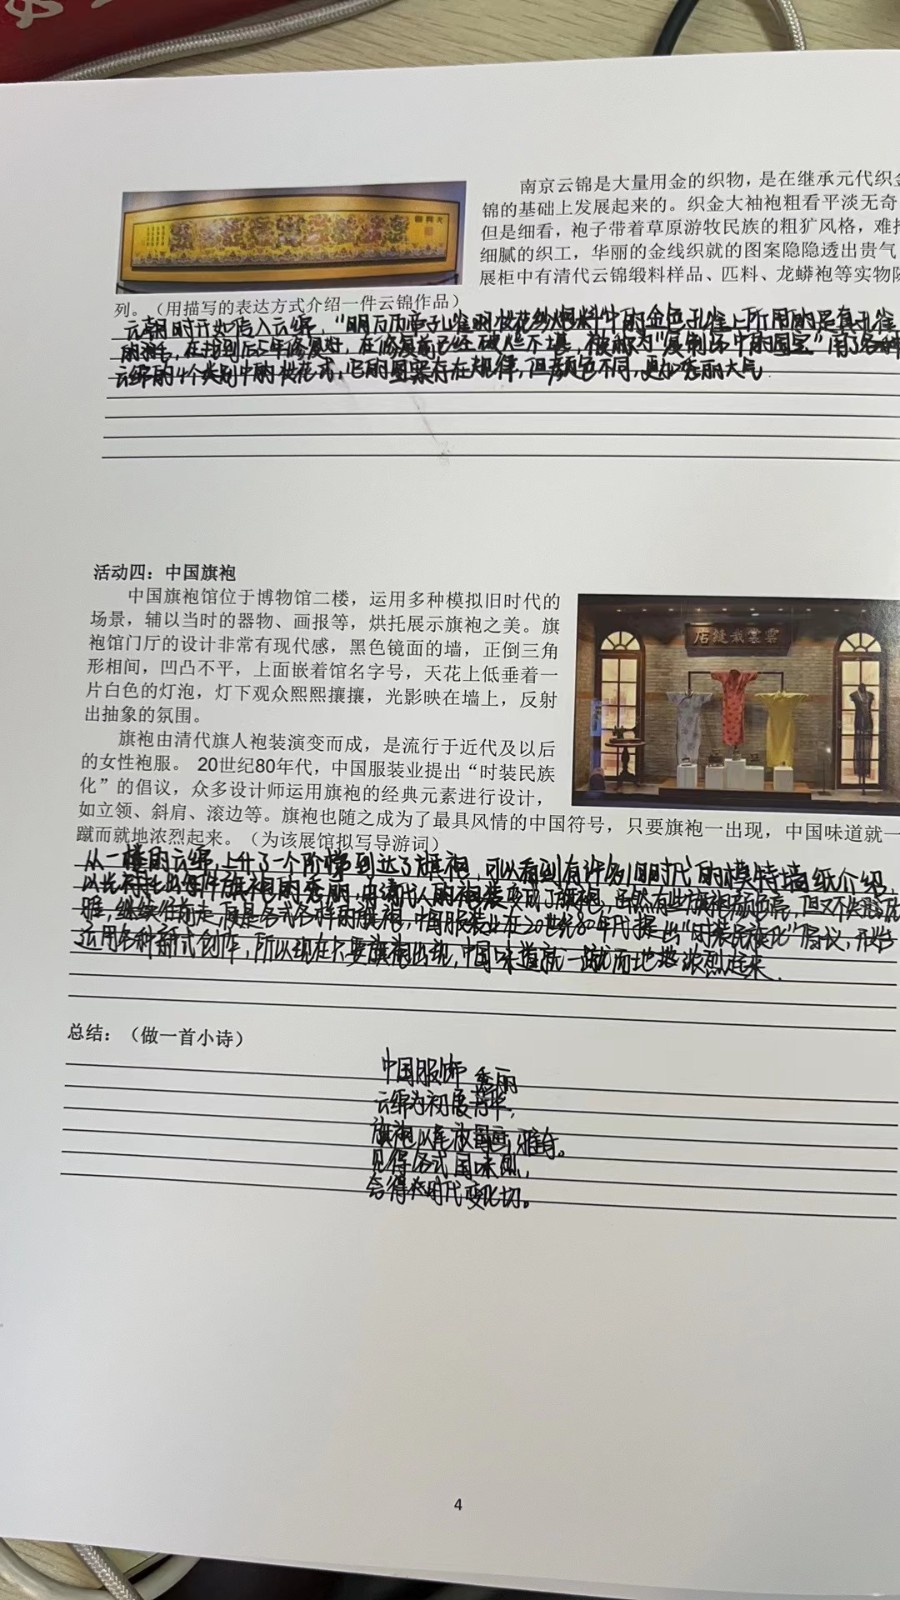 南京云锦是大量用金的织物，是在继承元代织金
锦的基础上发展起来的。织金大袖袍粗看平淡无奇
但是细看，袍子带着草原游牧民族的粗犷风格，难
细腻的织工，华丽的金线织就的图案隐隐透出贵气
展柜中有清代云锦缎料样品、匹料、龙蟒袍等实物
列。（用描写的表达方式介绍一件云锦作品）
元朝时开始传入云锦，“明万历孔雀羽妆花纱袍料中的金色孔雀上所用的是真孔雀
的，在找到后5年修复好，在修复前已经破烂不堪，被称为“复制坏中的国宝”用了各种
云锦的4个类别中的妆花式，它的图案存在规律，但颜色不同，更加秀丽大气
活动四：中国旗袍
中国旗袍馆位于博物馆二楼，运用多种模拟旧时代的
场景，辅以当时的器物、画报等，烘托展示旗袍之美。旗
袍馆门厅的设计非常有现代感，黑色镜面的墙，正倒三角
形相间，凹凸不平，上面嵌着馆名字号，天花上低垂着一
片白色的灯泡，灯下观众熙熙攘攘，光影映在墙上，反射
出抽象的氛围。
旗袍由清代旗人袍装演变而成，是流行于近代及以后
的女性袍服。 20世纪80年代，中国服装业提出“时装民族
化”的倡议，众多设计师运用旗袍的经典元素进行设计，
如立领、斜肩、滚边等。旗袍也随之成为了最具风情的中国符号，只要旗袍一出现，中国味道就一
蹴而就地浓烈起来。（为该展馆拟写导游词）
从一楼的云锦，上升了一个阶梯到达了旗袍，可以看到有许多旧时代的模特墙纸介绍，
以此衬托出每件旗袍的秀丽，由清代人的袍装变成了旗袍，虽然有些旗袍颜色亮，但又不失
雅，继续往前走，有是各式各样的旗袍，中国服装业在20世纪80年代提出“时装民族化”倡议，
运用各种新式创作，所以现在只要旗袍出现，中国味道就一蹴而地浓烈起来.
总结：（做一首小诗）
中国服饰 秀丽
云锦为初展芳华，
旗袍以，雅奇。
见得各式国味烈，
含得时代变化切。
4